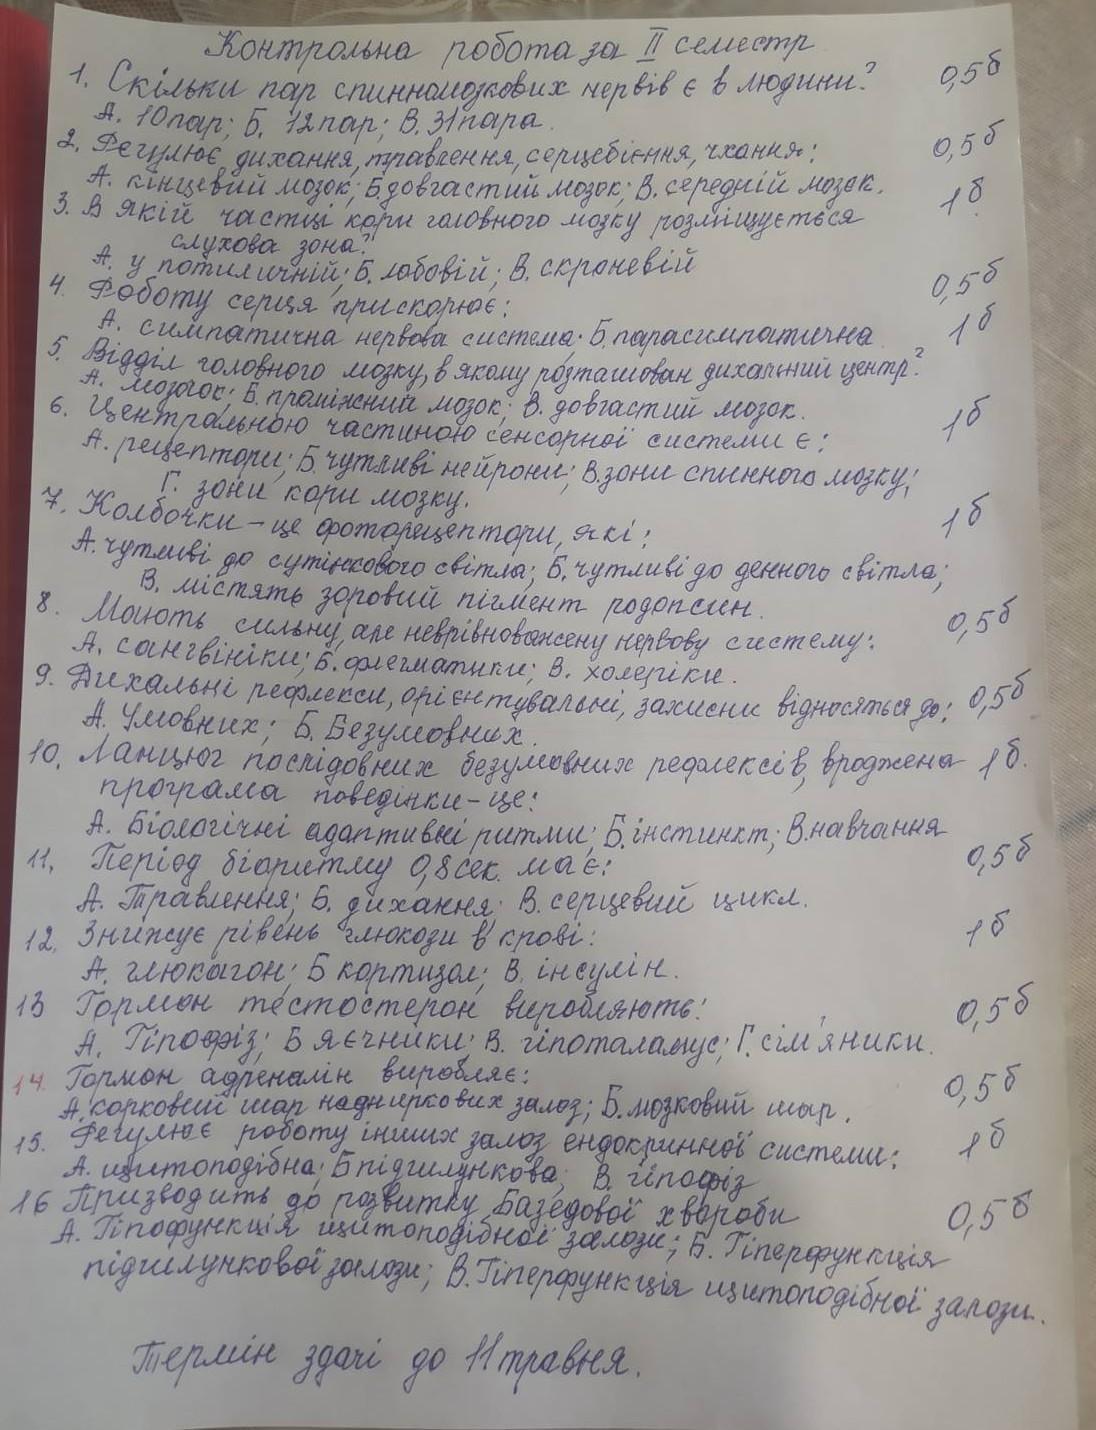 Контрольна робота за II семестр
1. Скільки пар спинномозкових нервів є в людини? 0,5б
А. 10 пар; Б. 12 пар; В. 31 пара.
2. Регулює дихання, травлення, серцебієння, чхання: 0,5б
А. кінцевий мозок; Б. довгастий мозок; В. середній мозок.
3. В якій частці кори головного мозку розміщується 1б
слухова зона?
А. у потиличній; Б. лобовій; В. скроневій
4. Роботу серця прискорює: 0,5б
А. симпатична нервова система; Б. парасимпатична
5. Відділ головного мозку, в якому розташован дихальний центр? 1б
А. мозочок; Б. проміжний мозок; В. довгастий мозок.
6. Центральною частиною сенсорної системи є: 1б
А. рецептори; Б. чутливі нейрони; В. зони спинного мозку;
Г. зони кори мозку.
7. Колбочки – це фоторецептори, які: 1б
А. чутливі до сутінкового світла; Б. чутливі до денного світла;
В. містять зоровий пігмент родопсин.
8. Мають сильну, але неврівноважену нервову систему: 0,5б
А. сангвініки; Б. флегматики; В. холеріки.
9. Дихальні рефлекси, орієнтувальні, захисни відносяться до: 0,5б
А. Умовних; Б. Безумовних.
10. Ланцюг послідовних безумовних рефлексів, вроджена 1б.
програма поведінки – це:
А. Біологічні адаптивні ритми; Б. інстинкт; В. навчання
11. Період біоритму 0,8 сек. має: 0,5б
А. Травлення; Б. дихання; В. серцевий цикл.
12. Знижує рівень глюкози в крові: 1б
А. глюкагон; Б кортизол; В. інсулін.
13 Гормон тестостерон виробляють: 0,5б
А. Гіпофіз; Б яєчники; В. гіпоталамус; Г. сім'яники.
14. Гормон адреналін виробляє: 0,5б
А. корковий шар наднирковиx залоз; Б. мозковий шар.
15. Регулює роботу інших залоз ендокринної системи: 1б
А. щитоподібна; Б підшлункова; В. гіпофіз
16 Призводить до розвитку Базедової хвороби 0,5б
А. Гіпофункція щитоподібної залози; Б. Гіперфункція
підшлункової залози; В. Гіперфункція щитоподібної залози.
Термін здачі до 11 травня.